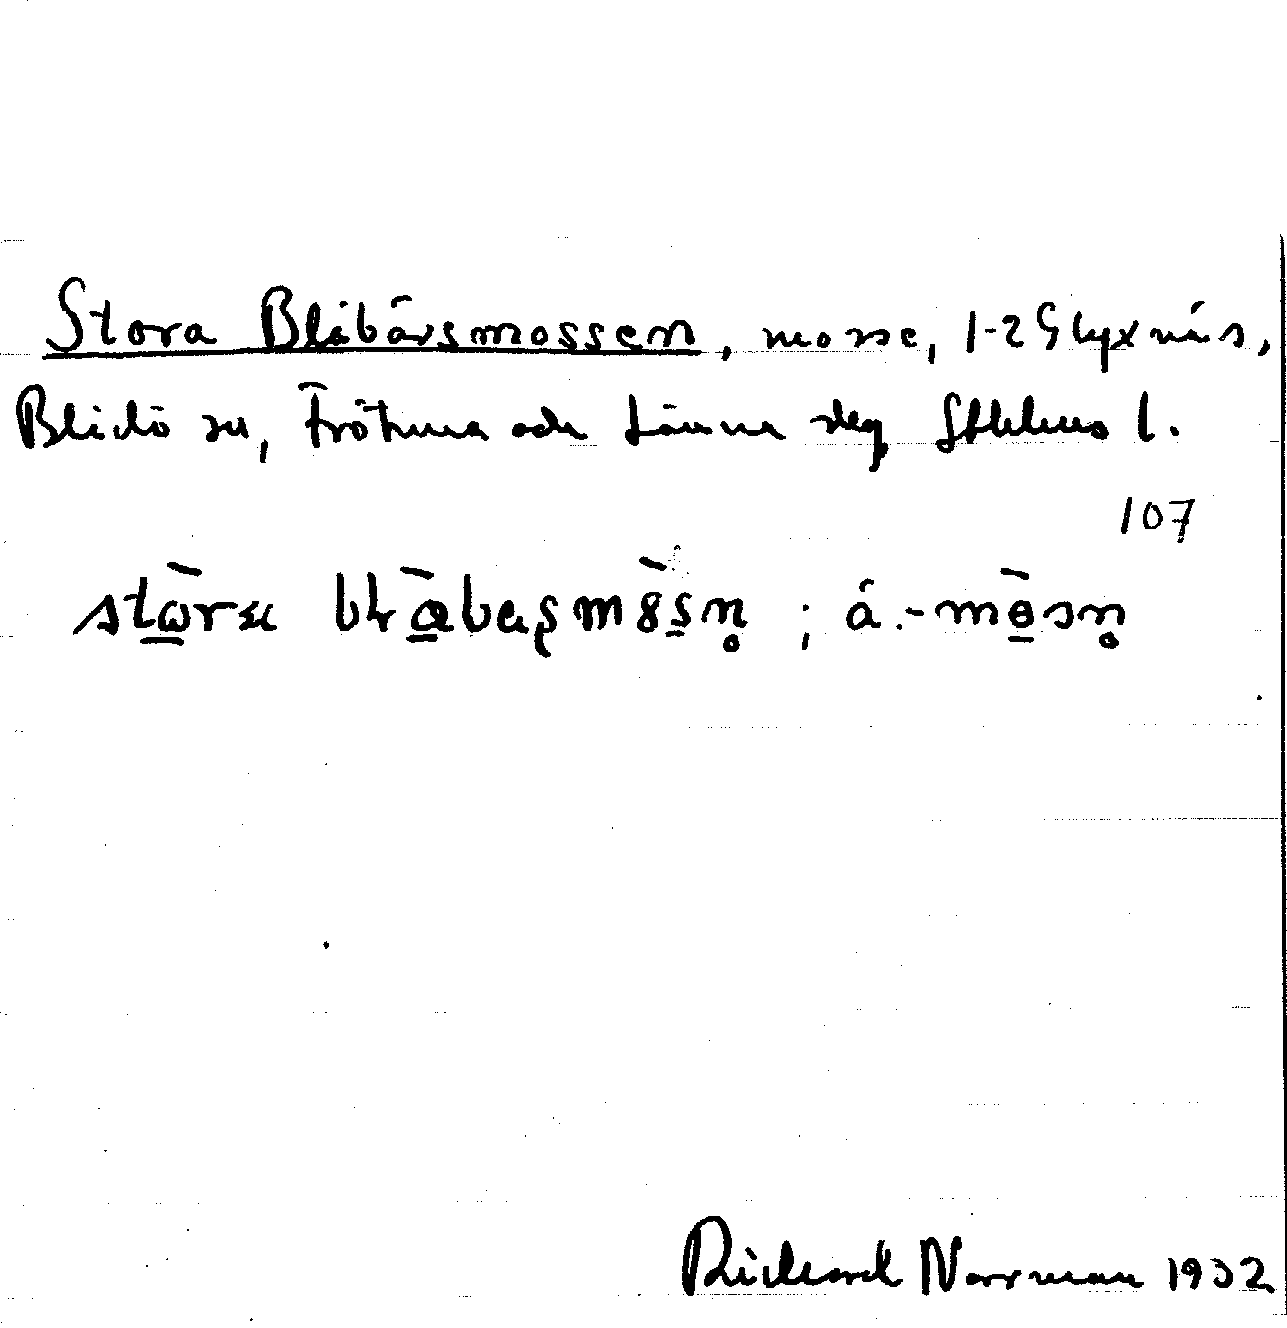 Stora Blåbärsmossen, mosse, 1-2 Glyxnäs,
Blidö sn, Frötuna och Länna slg, Sthlms l.
107
; á.-
Richard Norrman 1932